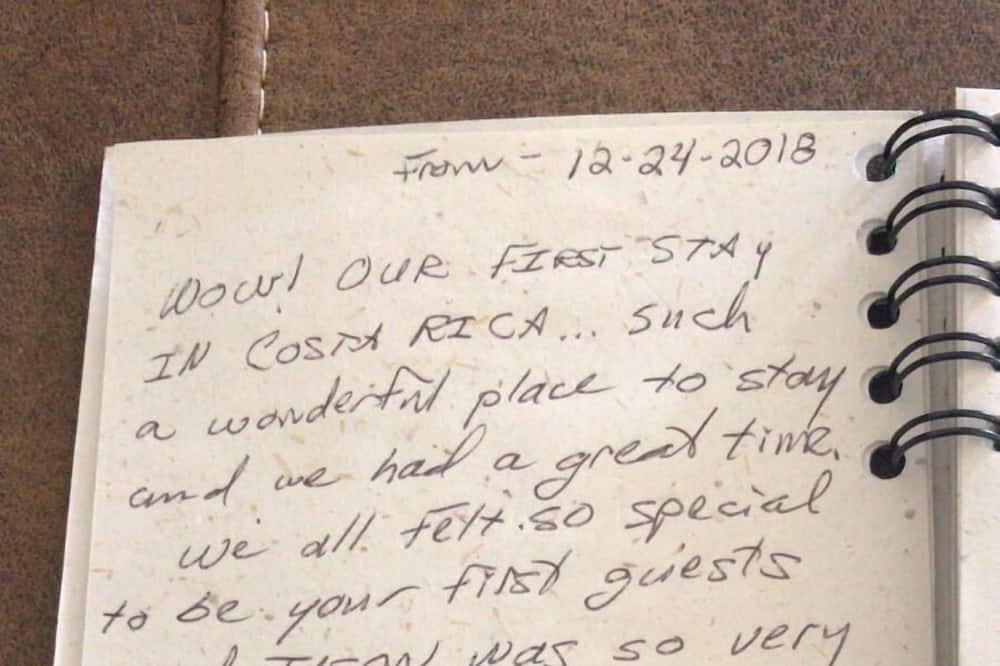 From - 12-24-2018
WOW! OUR FIRST STAY
IN COSTA RICA... such
a wonderful place to stay
and we had a great time.
we all felt so special
to be your first guests
was so very